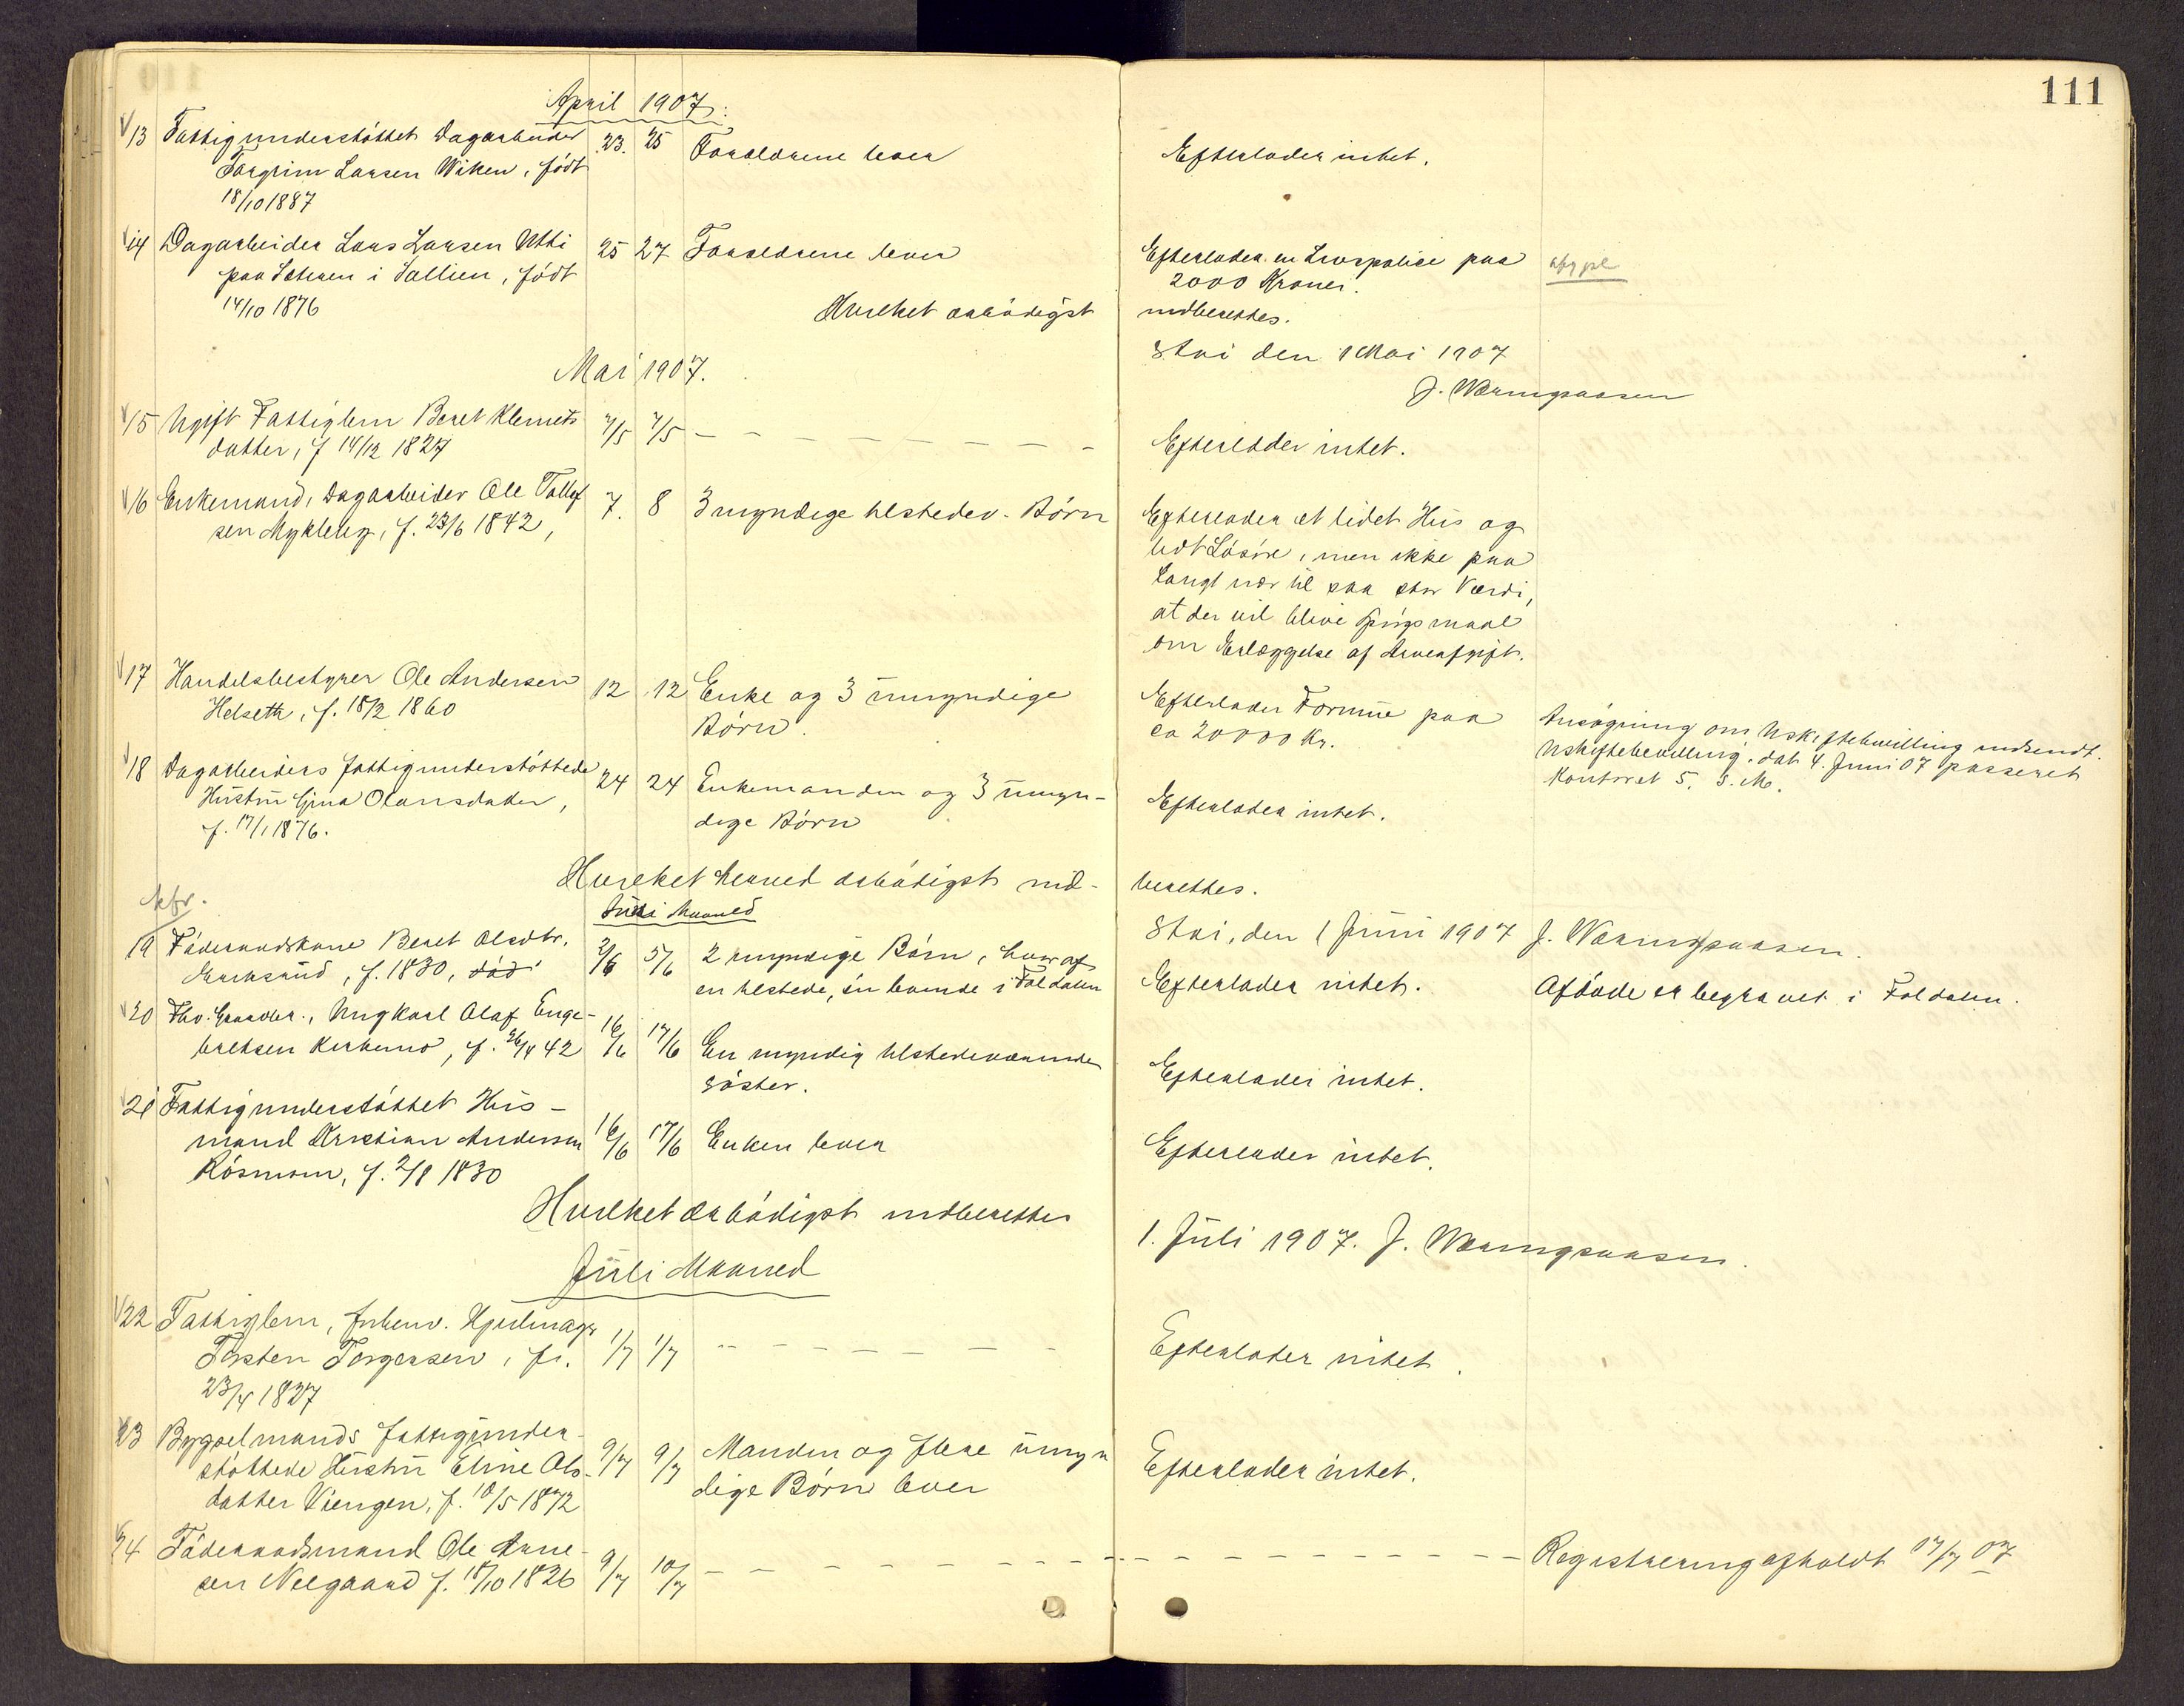 111
April 1907:
13 Fattigunderstøttet Dagarbeider 23. 25 Forældrene lever Efterlader intet.
Torgrim Larsen Wiken, født
18/10 1887
14 Dagarbeider Lars Larsen Utti 25 27 Forældrene lever Efterlader en Livspolice paa
paa Sæteren i Sollien, født 2000 Kroner.
14/10 1876 Hvilket ærbødigst indberettes.
Stai den 1 Mai 1907
J. Wæringsaasen
Mai 1907.
15 Ugift Fattiglem Beret Klemets 7/5 7/5 - - - Efterlader intet.
datter, f 14/12 1827
16 Enkemand, Dagarbeider Ole Tollef 7. 8 3 myndige tilstedev. Børn Efterlader et lidet Hus og
sen Mykleby, f. 23/6 1842, lidt Løsøre, men ikke paa
langt nær til saa stor Værdi,
at der vil blive Spørgsmaal
om Erlæggelse af Arveafgift.
17 Handelsbestyrer Ole Andersen 12 12 Enke og 3 umyndige Efterlader Formue paa Ansøgning om Uskiftebevilling indsendt.
Helseth, f. 18/2 1860 Børn. ca 20000 Kr. Uskiftebevilling dat 4. Juni 07 passeret
Kontoret 5. S. M.
18 Dagarbeiders fattigunderstøttede 24 24 Enkemanden og 3 umyn- Efterlader intet.
Hustru Gina Olausdatter, dige Børn
f. 17/1 1876.
Hvilket herved ærbødigst ind- berettes.
Stai, den 1 Juni 1907 J. Wæringsaasen.
Juni Maaned
19 Føderaadskone Beret Olsdtr. 2/6 5/6 2 myndige Børn, hvoraf Efterlader intet. Afdøde er begravet i Foldalen.
f. 1830, død en tilstede, én boende i Foldalen
20 Fhv. Gaardbr., Ungkarl Olaf Enge- 16/6 17/6 En myndig tilstedeværende Efterlader intet.
bretsen f. 26/4 42 Søster.
21 Fattigunderstøttet Hus- 16/6 17/6 Enken lever Efterlader intet.
mand Kristian Andersen
Røsmoen, f. 2/8 1830
Hvilket ærbødigst indberettes
1. Juli 1907. J. Wæringsaasen.
Juli Maaned
22 Fattiglem, forhenv. Hjulmager 1/7 1/7 - - - Efterlader intet.
Torsten Torgersen, f.
23/4 1827
23 Bygselmands fattigunder- 9/7 9/7 Manden og flere umyn Efterlader intet.
støttede Hustru Eline Ols- dige Børn lever
datter Viengen, f. 10/5 1872
24 Føderaadsmand Ole Arne- 9/7 10/7 - - - Registrering afholdt 17/7 07
sen Neegaard f. 18/10 1826